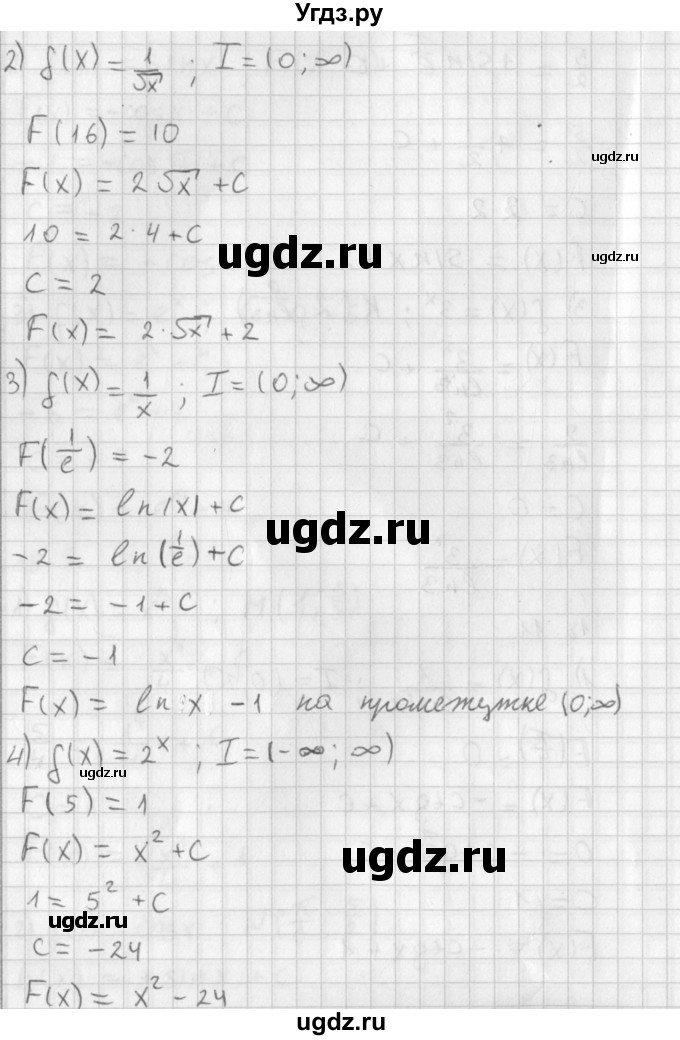 Угдз.ру
2) f(x) = 1/√x ; I = (0; ∞)
F(16) = 10
ugdz.ru
F(x) = 2√x + C
10 = 2·4 + C
ugdz.ru
ugdz.ru
C = 2
F(x) = 2·√x + 2
3) f(x) = 1/x ; I = (0; ∞)
F(1/e) = -2
F(x) = ln|x| + C
ugdz.ru
-2 = ln(1/e) + C
-2 = -1 + C
C = -1
F(x) = ln x - 1 на промежутке (0; ∞)
4) f(x) = 2^x ; I = (-∞; ∞)
ugdz.ru
F(5) = 1
F(x) = x² + C
ugdz.ru
1 = 5² + C
ugdz.ru
C = -24
F(x) = x² - 24
ugdz.ru